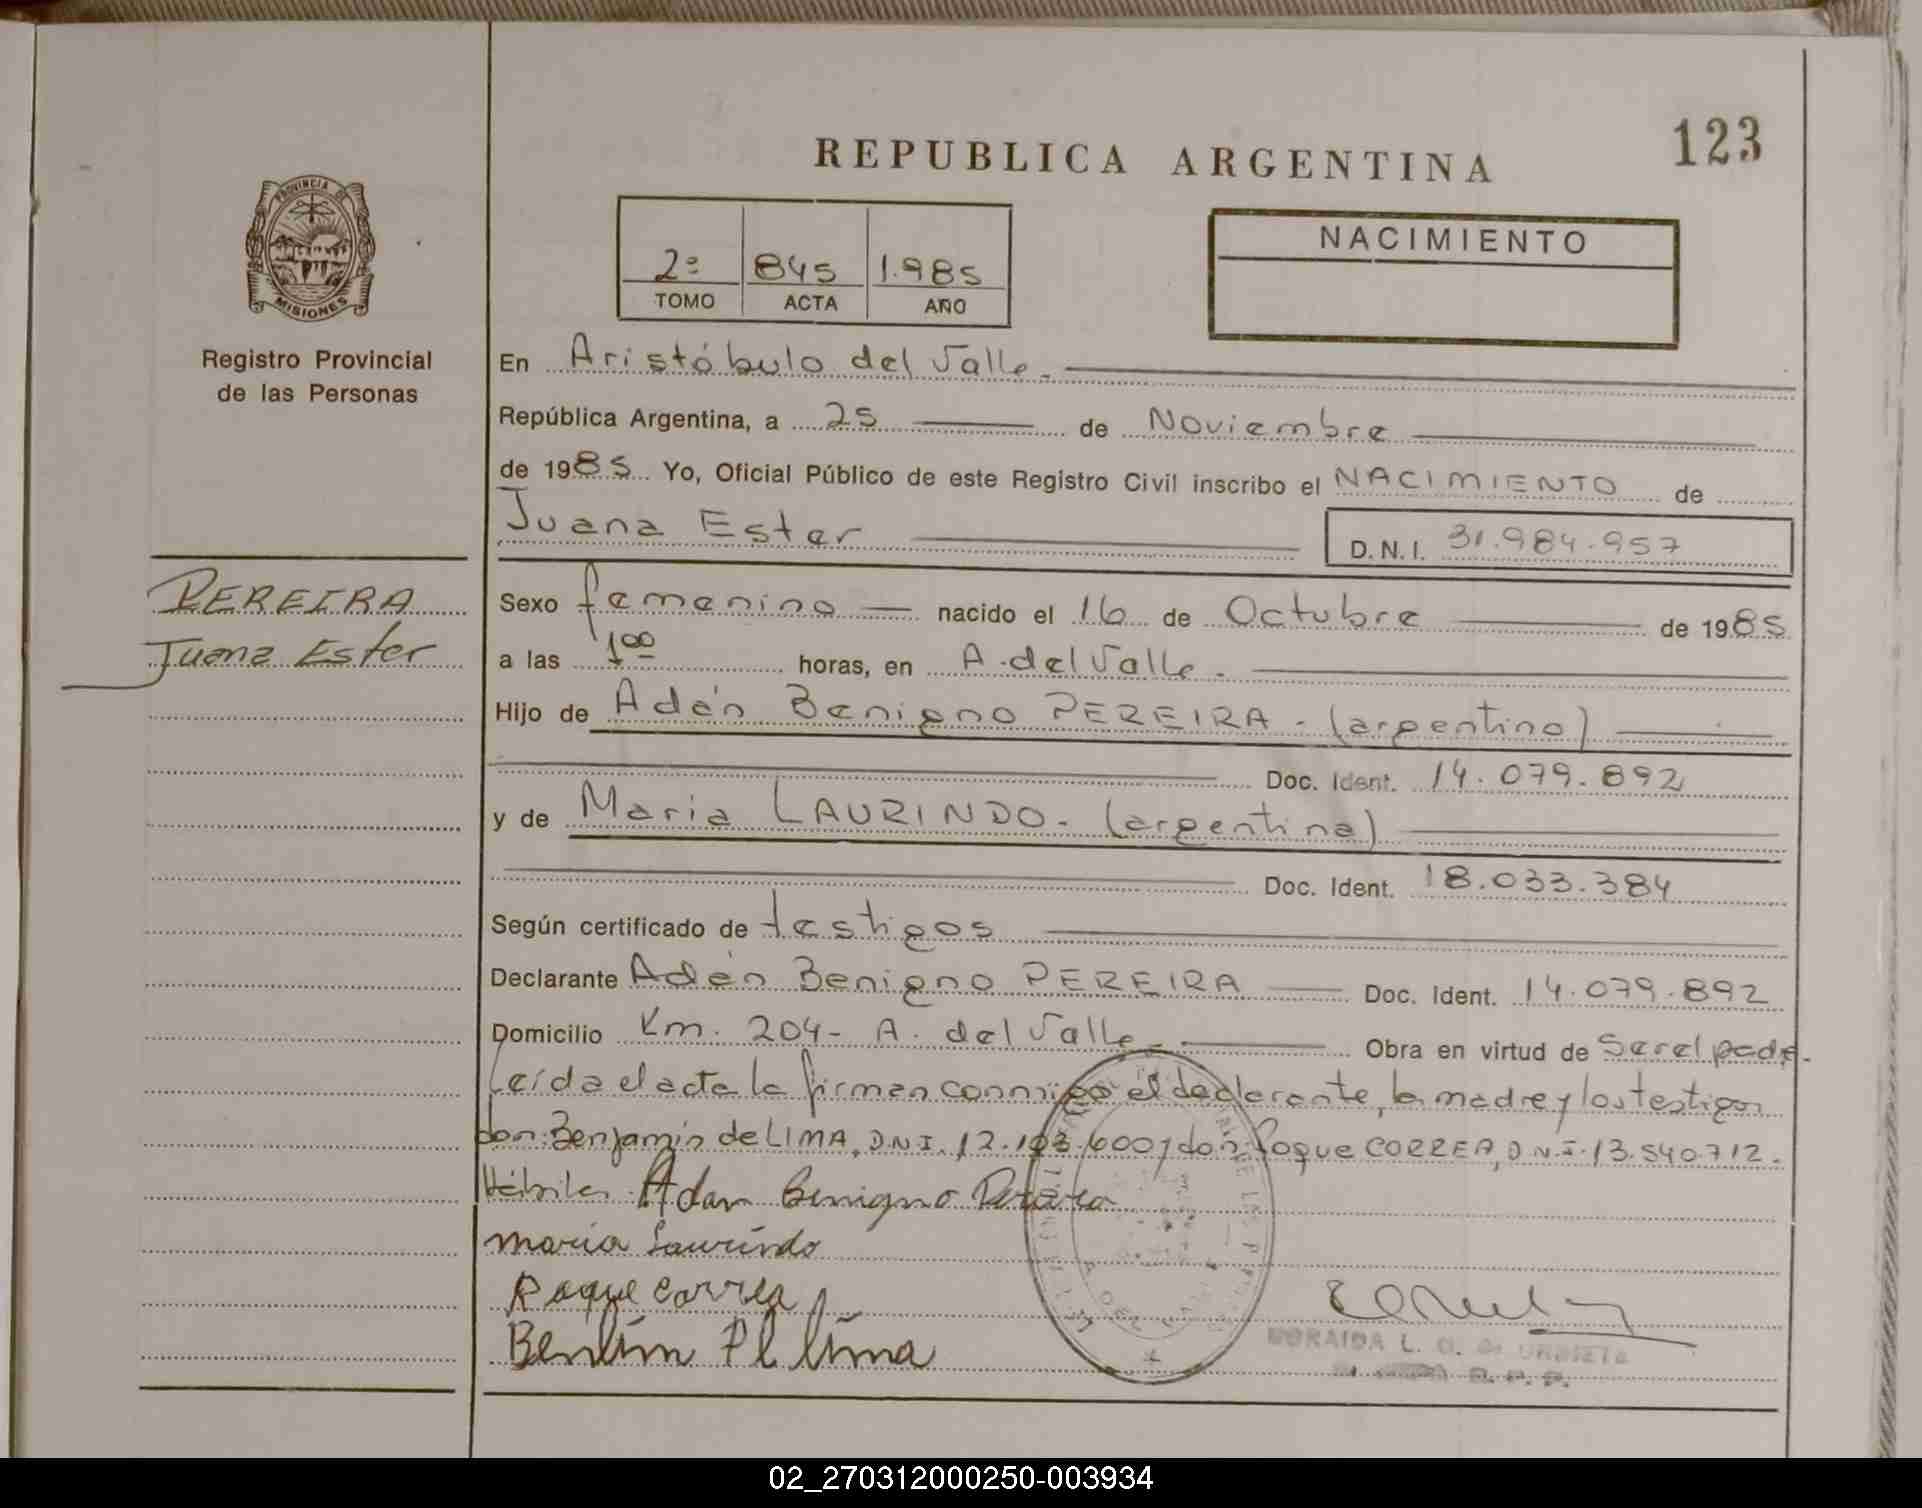 REPUBLICA ARGENTINA
123
PROVINCIA DE
MISIONES
Registro Provincial
de las Personas
2º 845 1.985
TOMO ACTA AÑO
NACIMIENTO
En Aristóbulo del Valle.
República Argentina, a 25 de Noviembre
de 1985 Yo, Oficial Público de este Registro Civil inscribo el NACIMIENTO de
Juana Ester
D.N.I. 31.984.957
PEREIRA
Juana Ester
Sexo femenino nacido el 16 de Octubre de 1985
a las 1 00 horas, en A. del Valle.
Hijo de Adán Benigno PEREIRA - (argentino)
Doc. Ident. 14.079.892
y de Maria LAURINDO - (argentina)
Doc. Ident. 18.033.384
Según certificado de testigos
Declarante Adán Benigno PEREIRA Doc. Ident. 14.079.892
Domicilio Km. 204 - A. del Valle - Obra en virtud de Ser el padre
Leída el acta la firman conmigo el declarante, la madre y los testigos
don: Benjamín de LIMA, D.N.I. 12.193.600 y don Roque CORREA, D.N.I. 13.540.712.
Hábiles. Adan Benigno Pereira
maria Laurindo
Roque Correa
lima
L. O. de URBIETA
R. P. P.
02_270312000250-003934